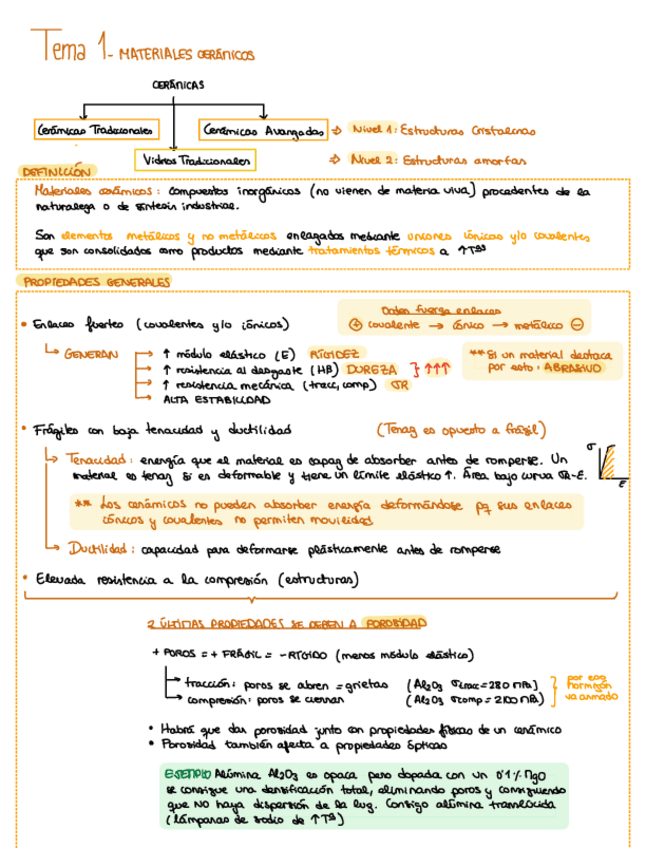 Tema 1- MATERIALES CERÁNICOS
CERÁNICAS
Cerámicas Tradicionales
Cerámicas Avanzadas → Nivel 1: Estructuras Cristalinas
Vidrios Tradicionales → Nivel 2: Estructuras amorfas
DEFINICIÓN
Materiales cerámicos: compuestos inorgánicos (no vienen de materia viva) procedentes de la
naturaleza o de síntesis industrial.
Son elementos metálicos y no metálicos enlazados mediante uniones iónicas y/o covalentes
que son consolidados como productos mediante tratamientos térmicos a ↑Tªs
PROPIEDADES GENERALES
• Enlaces fuertes (covalentes y/o iónicos)
Orden fuerza enlaces
⊕ covalente → iónico → metálico ⊖
↳ GENERAN → ↑ módulo elástico (E) RIGIDEZ
→ ↑ resistencia al desgaste (HB) DUREZA } ↑↑↑
→ ↑ resistencia mecánica (tracc, comp) σR
→ ALTA ESTABILIDAD
** Si un material destaca
por esto: ABRASIVO
• Frágiles con baja tenacidad y ductilidad (Tenaz es opuesto a frágil)
↳ Tenacidad: energía que el material es capaz de absorber antes de romperse. Un
material es tenaz si es deformable y tiene un límite elástico ↑. Área bajo curva σR-E.
σ
E
** Los cerámicos no pueden absorber energía deformándose pq sus enlaces
iónicos y covalentes no permiten movilidad
↳ Ductilidad: capacidad para deformarse plásticamente antes de romperse
• Elevada resistencia a la compresión (estructuras)
2 ÚLTIMAS PROPIEDADES SE DEBEN A POROSIDAD
+ POROS = + FRÁGIL = - RÍGIDO (menos módulo elástico)
→ tracción: poros se abren = grietas (Al2O3 σtracc = 280 MPa)
→ compresión: poros se cierran (Al2O3 σcomp = 2100 MPa)
} por eso
hormigón
va armado
• Habrá que dar porosidad junto con propiedades físicas de un cerámico
• Porosidad también afecta a propiedades ópticas
EJEMPLO Alúmina Al2O3 es opaca pero dopada con un 0'1% MgO
se consigue una densificación total, eliminando poros y consiguiendo
que NO haya dispersión de la luz. Consigo alúmina translúcida
(lámparas de sodio de ↑Tª)